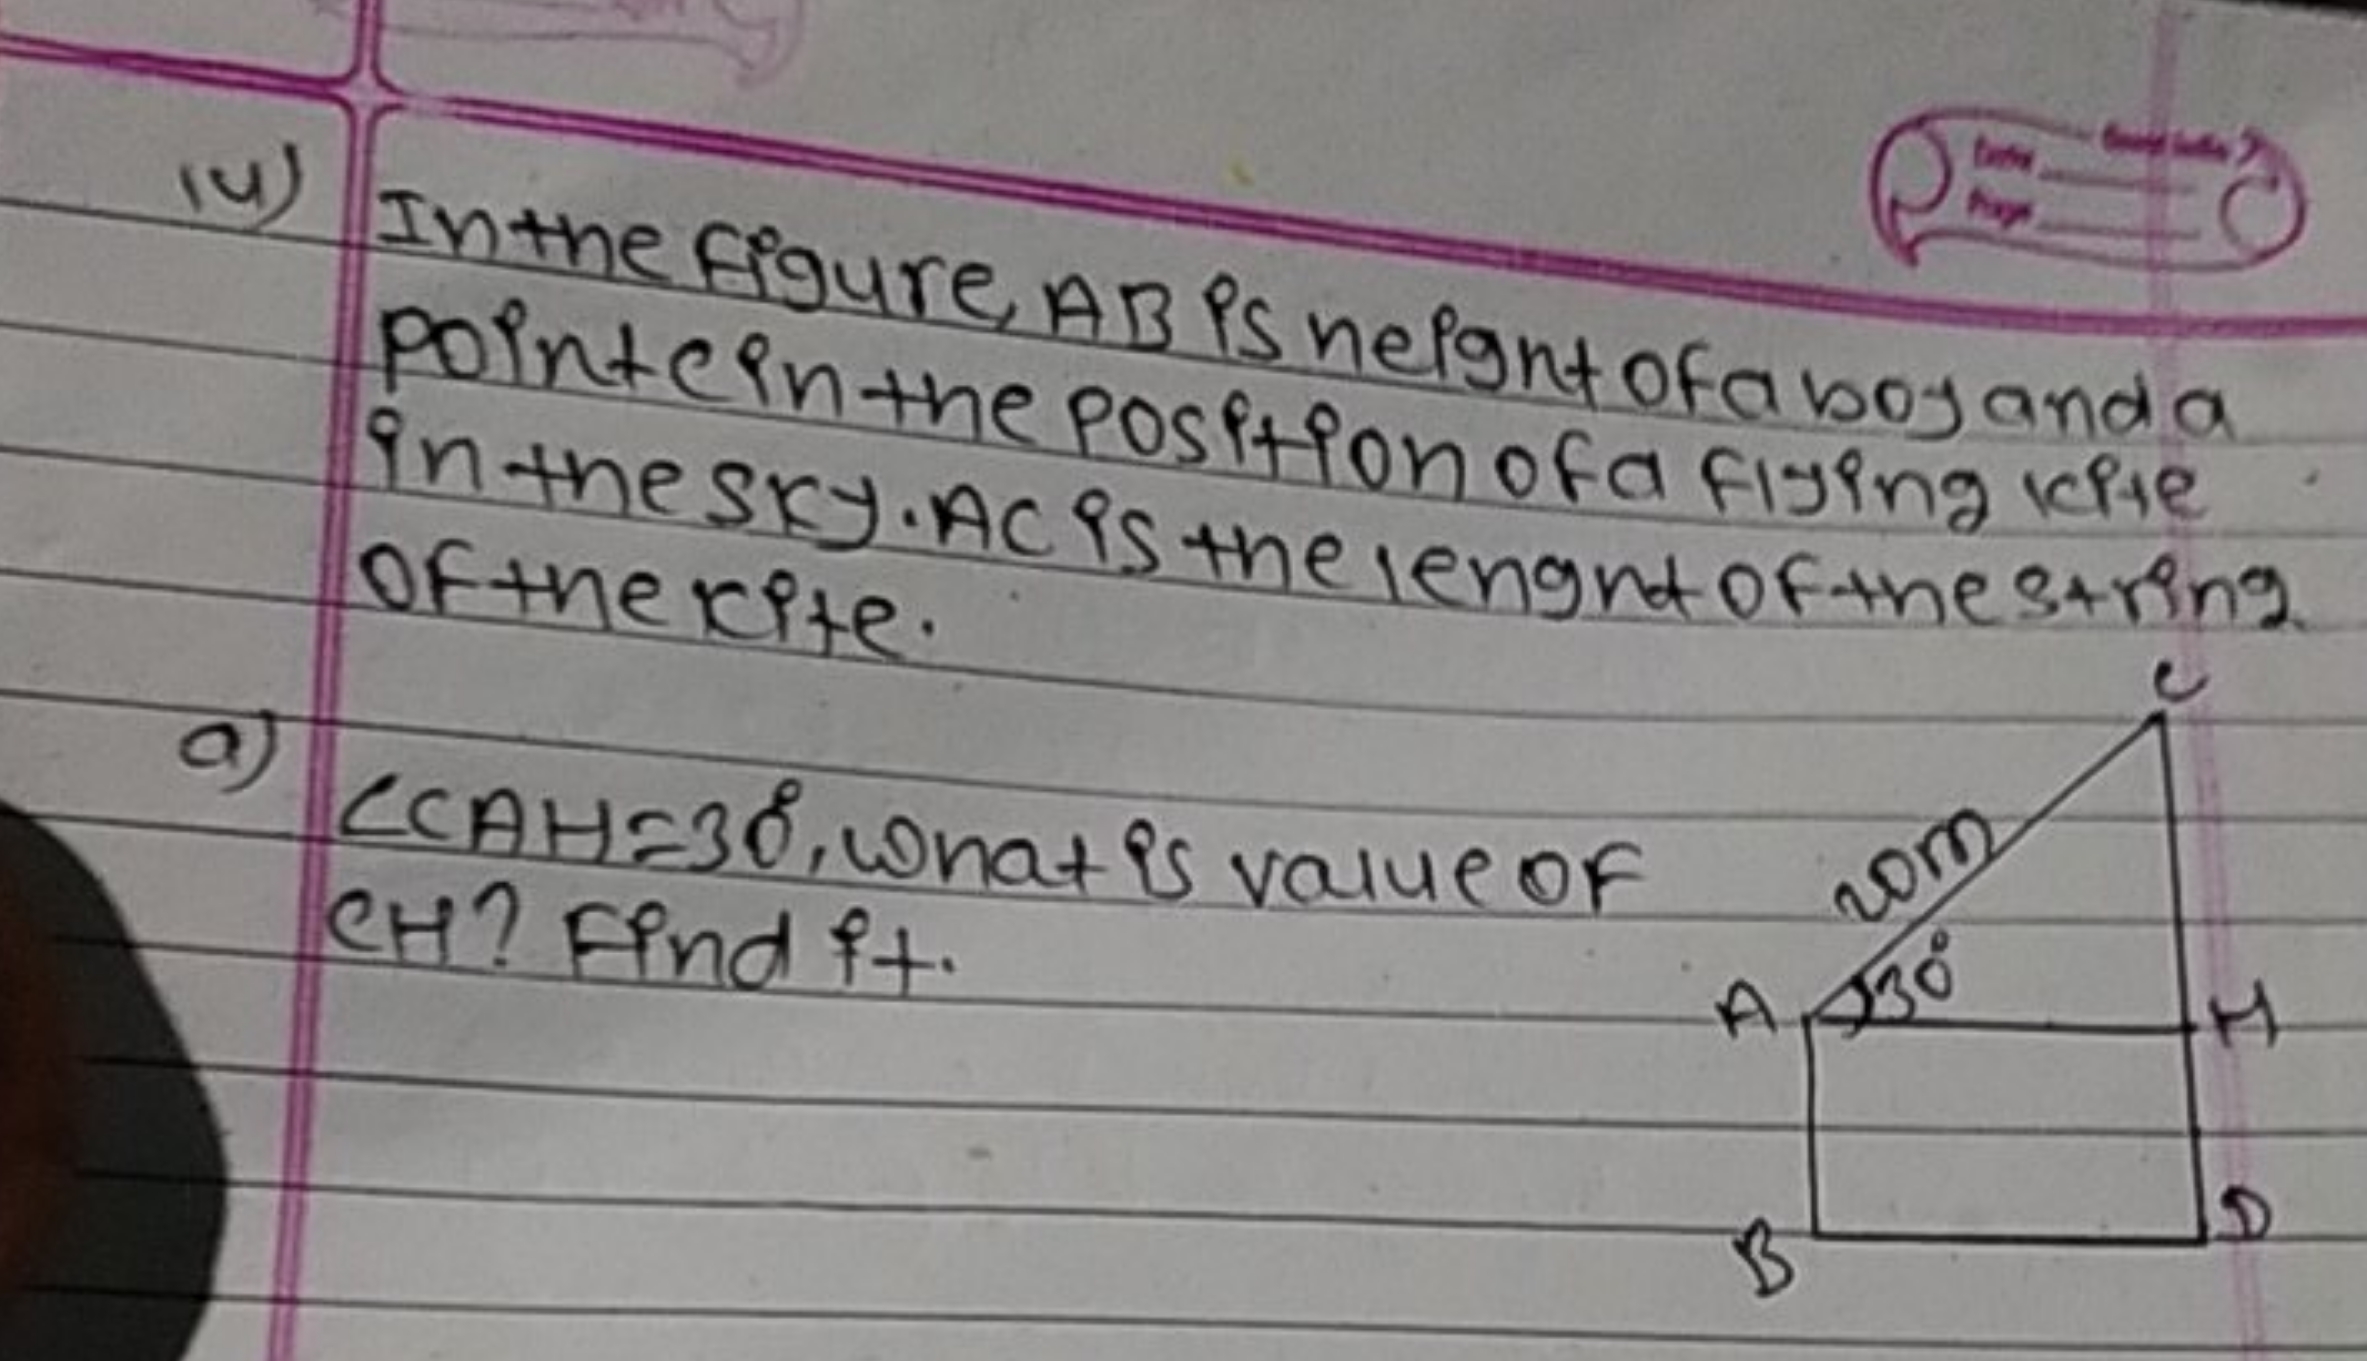 14) In the figure, AB is height of a boy and a
point c in the position of a flying kite
in the sky. AC is the lenght of the string
of the kite.
a) ∠CAH=30°, what is value of
CH? Find it.
C
20m
30°
A
H
B
D
Date
Page